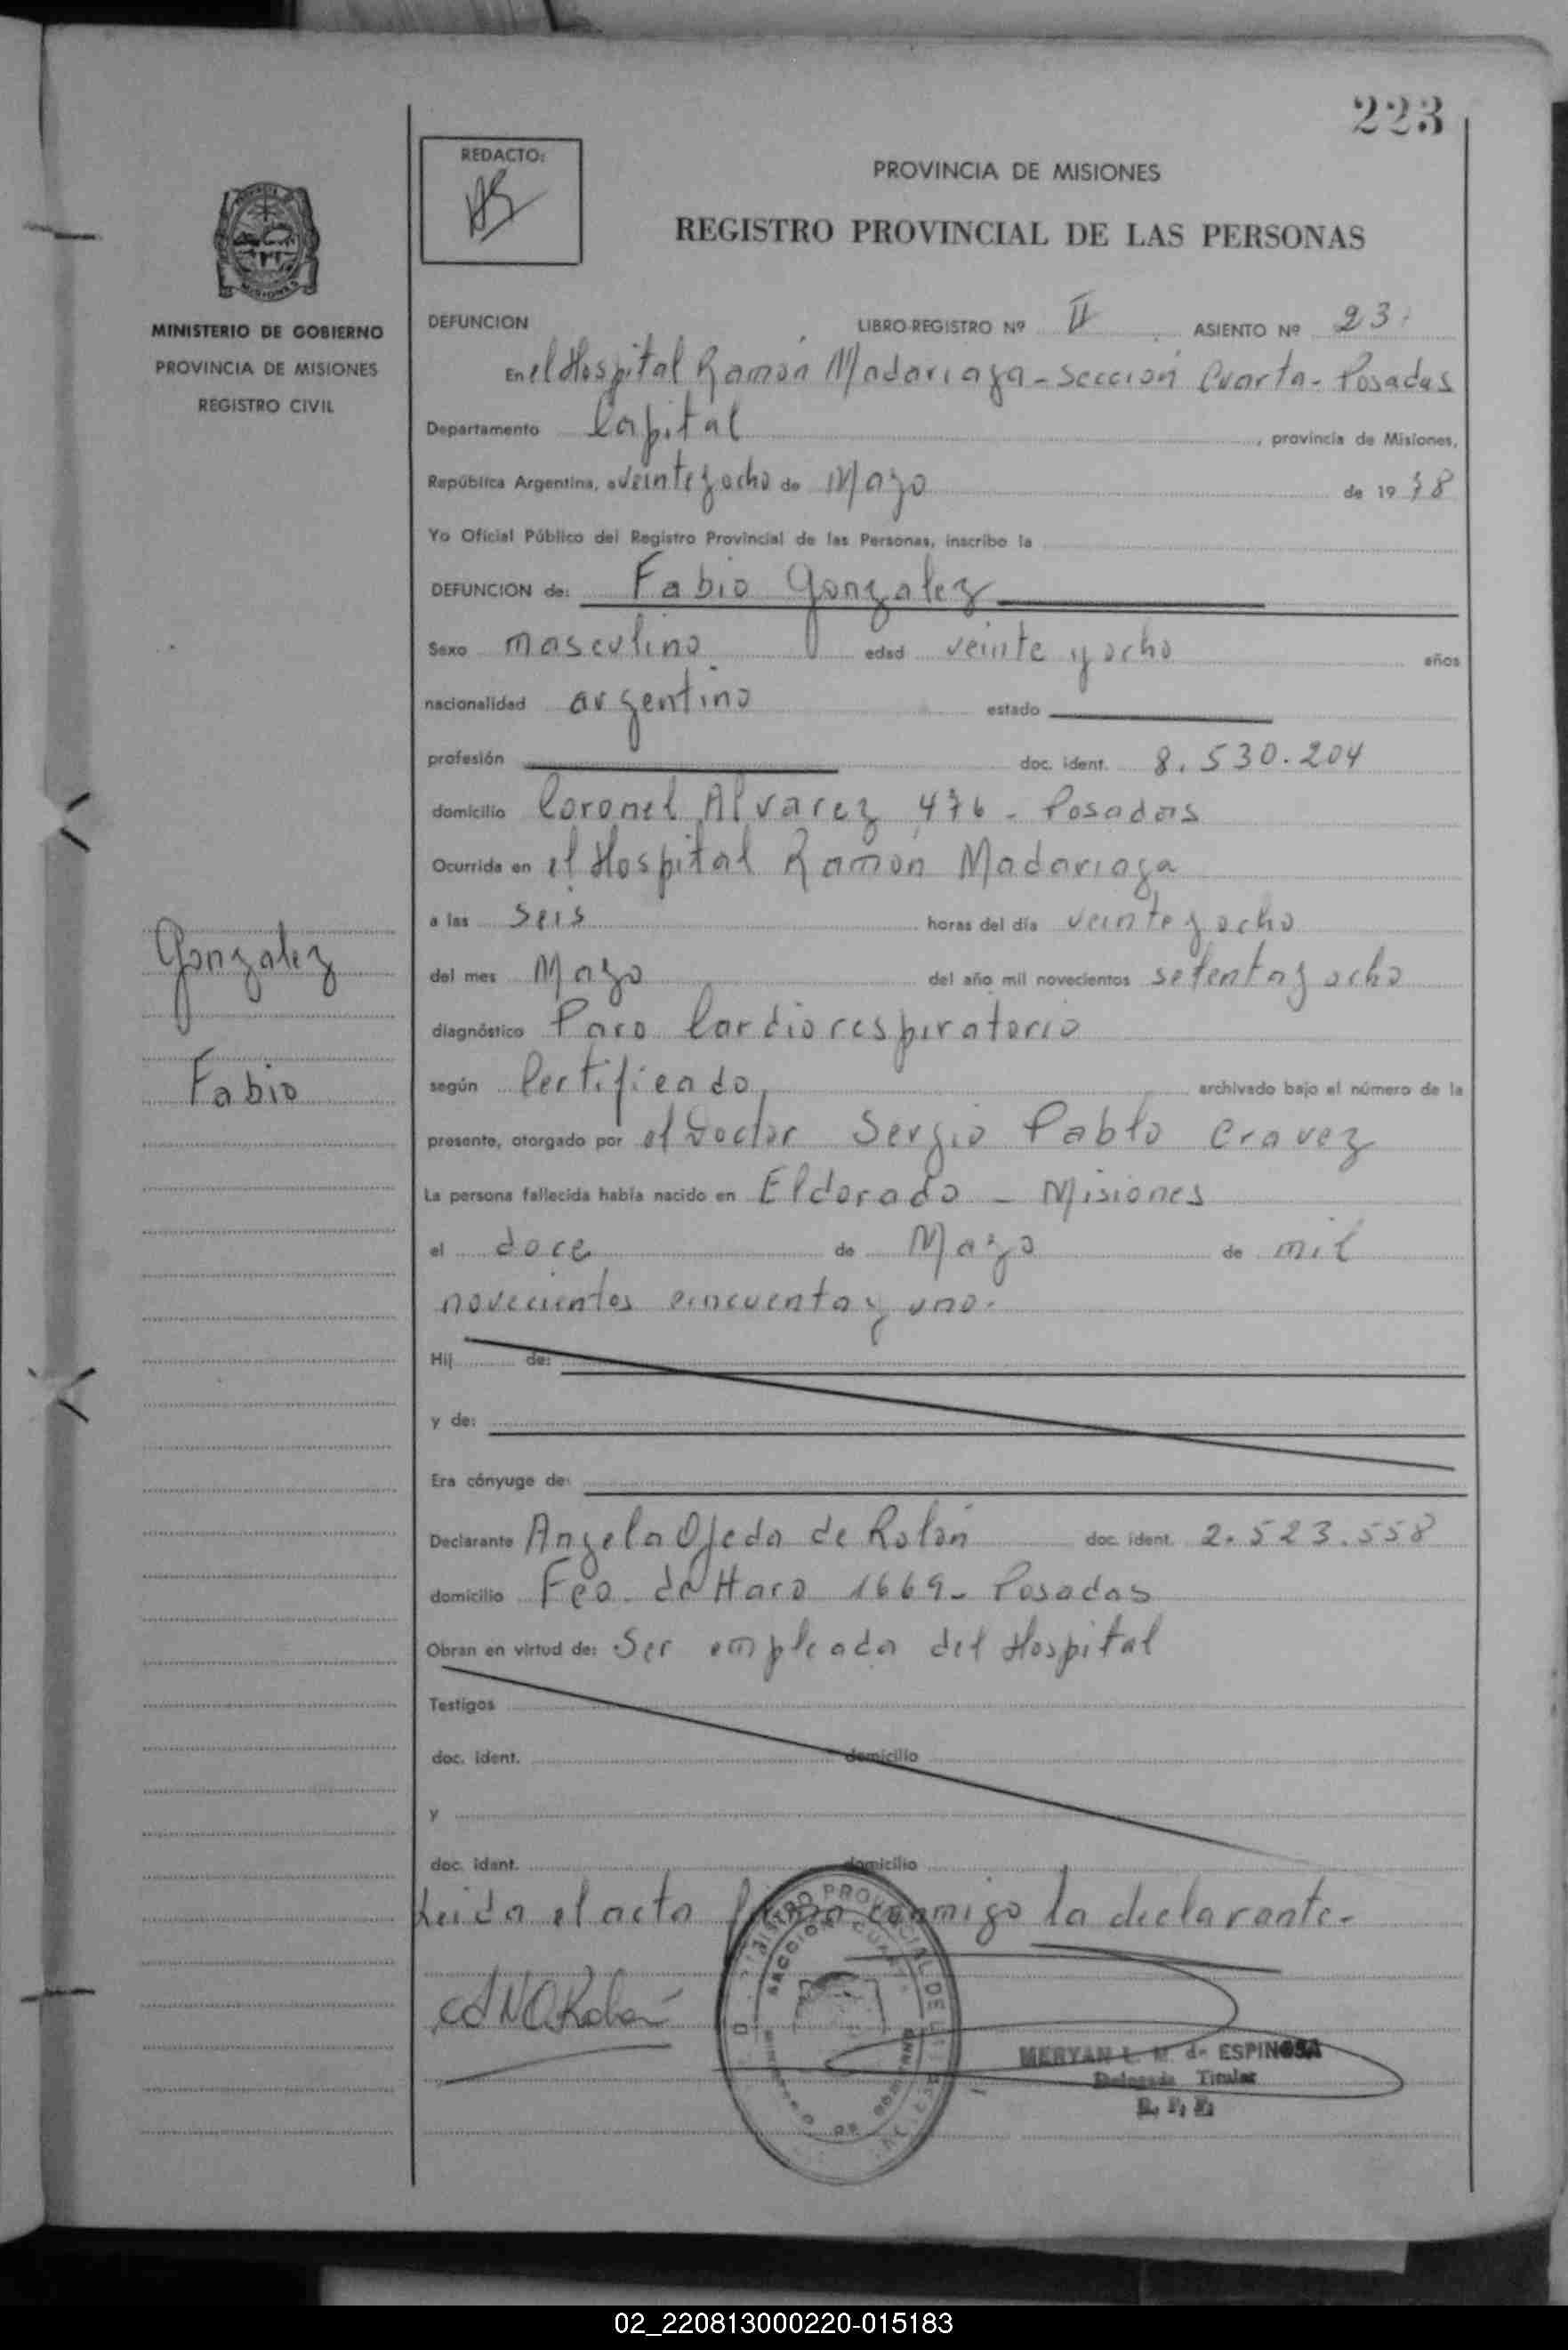 223
REDACTO:
PROVINCIA DE MISIONES
REGISTRO PROVINCIAL DE LAS PERSONAS
MISIONES
MINISTERIO DE GOBIERNO
PROVINCIA DE MISIONES
REGISTRO CIVIL
DEFUNCION LIBRO-REGISTRO Nº II ASIENTO Nº 23.
En el Hospital Ramón Madariaga - Sección Cuarta - Posadas
Departamento Capital, provincia de Misiones,
República Argentina, a veinte y ocho de Mayo de 1978
Yo Oficial Público del Registro Provincial de las Personas, inscribo la
DEFUNCION de: Fabio Gonzalez
Sexo masculino edad veinte y ocho años
nacionalidad argentino estado
profesión doc. ident. 8.530.204
domicilio Coronel Alvarez 476 - Posadas
Ocurrida en el Hospital Ramón Madariaga
a las seis horas del día veinte y ocho
del mes Mayo del año mil novecientos setenta y ocho
diagnóstico Paro Cardiorespiratorio
según Certificado, archivado bajo el número de la
presente, otorgado por el Doctor Sergio Pablo Cravez
La persona fallecida había nacido en Eldorado - Misiones
el doce de Mayo de mil
novecientos cincuenta y uno.
Hij de:
y de:
Era cónyuge de:
Declarante Angela Ojeda de Rolón doc. ident. 2.523.558
domicilio Fco. de Haro 1669 - Posadas
Obran en virtud de: Ser empleada del Hospital
Testigos
doc. ident. domicilio
y
doc. ident. domicilio
Leida el acta firma conmigo la declarante.
Gonzalez
Fabio
MERYAN L. M. de ESPINOSA
Delegada Titular
R. P. P.
02_220813000220-015183